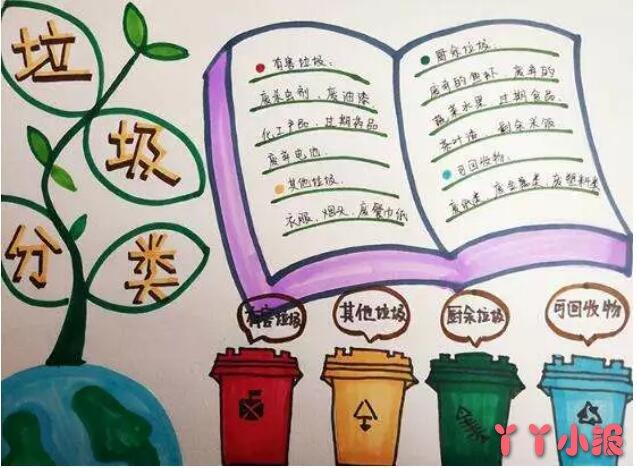 垃
圾
分
类
有害垃圾:
废杀虫剂、废油漆
化工产品、过期药品
废弃电池
其他垃圾.
衣服、烟头、废餐巾纸
厨余垃圾.
废弃的鱼虾、废弃的
蔬菜水果、过期食品.
茶叶渣、剩余米饭
可回收物.
废纸类、废金属类、废塑料类
有害垃圾
其他垃圾
厨余垃圾
可回收物
丫丫小报